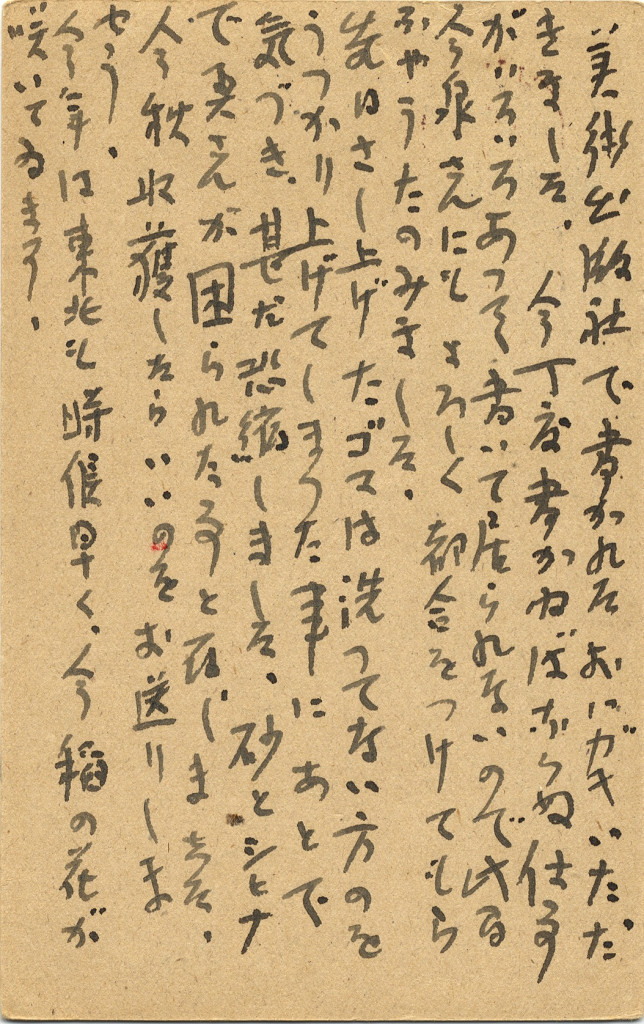 美術出版社で書かれたおハガキいただ
きました、今丁度書かねばならぬ仕事
がいろいろあって書いて居られないので此旨
今泉さんにもよろしく都合をつけてもら
ふやうたのみました、
先日さし上げたゴマは洗ってない方のを
うっかり上げてしまった事にあとで
気づき、甚だ恐縮しました、砂とシヒナ
で奥さんが困られたる事と存じました、
今秋収獲したらいいのをお送りしま
せう、
今年は東北も時候早く、今稲の花が
咲いてゐます、